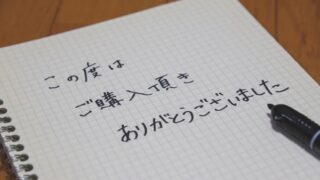 この度は
ご購入頂き
ありがとうございました